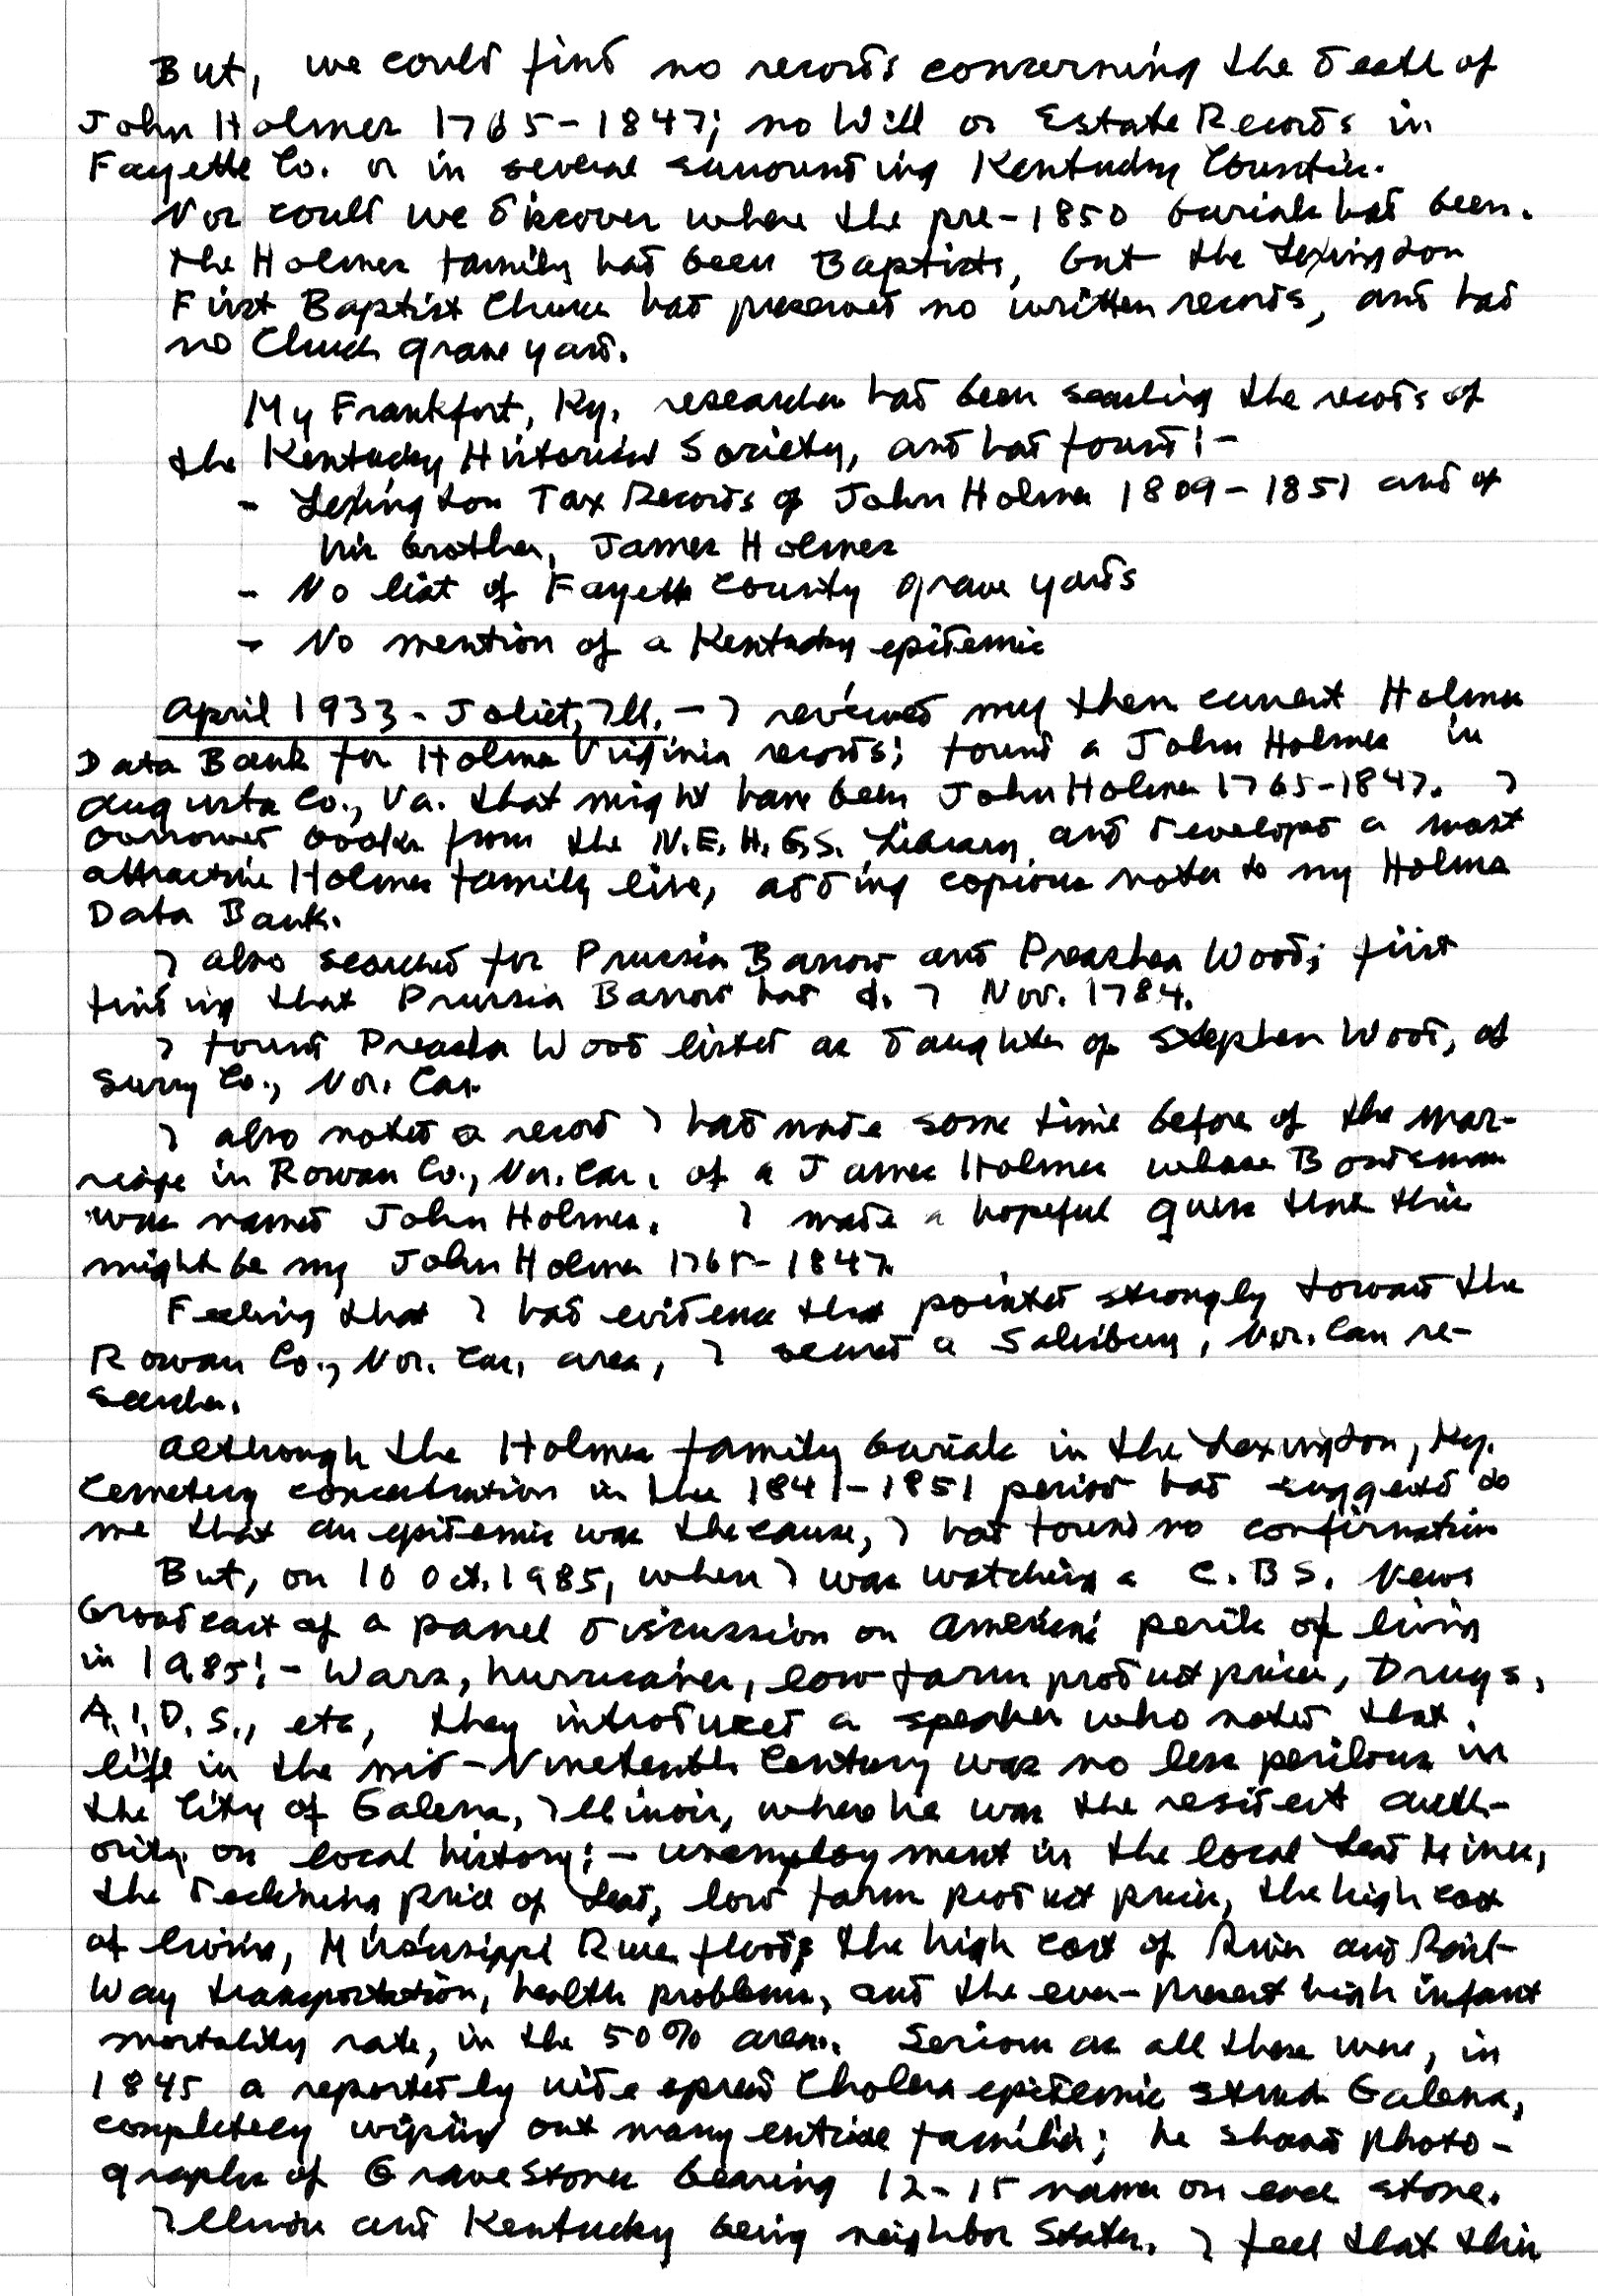 But, we could find no records concerning the death of
John Holmes 1765-1847; no Will or Estate Records in
Fayette Co. or in several surrounding Kentucky Counties.
Nor could we discover where the pre-1850 burials had been.
The Holmes family had been Baptists, but the Lexington
First Baptist Church had preserved no written records, and had
no Church grave yard.
My Frankfort, Ky. researcher had been searching the records of
the Kentucky Historical Society, and had found:-
- Lexington Tax Records of John Holmes 1809-1851 and of
his brother, James Holmes
- No list of Fayette County grave yards
- No mention of a Kentucky epidemic
April 1933 - Joliet, Ill. - I reviewed my then current Holmes
Data Bank for Holmes Virginia records; found a John Holmes in
Augusta Co., Va. that might have been John Holmes 1765-1847. I
borrowed books from the N.E.H.G.S. Library, and developed a most
attractive Holmes family line, adding copious notes to my Holmes
Data Bank.
I also searched for Prussia Barrow and Preasha Wood; first
finding that Prussia Barrow had d. 7 Nov. 1784.
I found Preasha Wood listed as daughter of Stephen Wood, of
Surry Co., Nor. Car.
I also noted a record I had made some time before of the mar-
riage in Rowan Co., Nor. Car. of a James Holmes whose Bondsman
was named John Holmes. I made a hopeful guess that this
might be my John Holmes 1765-1847.
Feeling that I had evidence that pointed strongly toward the
Rowan Co., Nor. Car. area, I secured a Salisbury, Nor. Car. re-
searcher.
Although the Holmes family burials in the Lexington, Ky.
Cemetery concentration in the 1841-1851 period had suggested to
me that an epidemic was the cause, I had found no confirmation
But, on 10 Oct. 1985, when I was watching a C.B.S. News
broadcast of a panel discussion on Americans' perils of living
in 1985:- Wars, hurricanes, low farm product prices, Drugs,
A.I.D.S., etc, they introduced a speaker who noted that
life in the mid-Nineteenth Century was no less perilous in
the City of Galena, Illinois, where he was the resident auth-
ority on local history:- unemployment in the local Lead Mines,
the declining price of Lead, low farm product prices, the high cost
of living, Mississippi River floods, the high cost of River and Rail-
way transportation, health problems, and the ever-present high infant
mortality rate, in the 50% area. Serious as all these were, in
1845 a reportedly wide spread Cholera epidemic struck Galena,
completely wiping out many entire families; he showed photo-
graphs of Grave Stones bearing 12-15 names on each stone.
Illinois and Kentucky being neighbor States, I feel that this